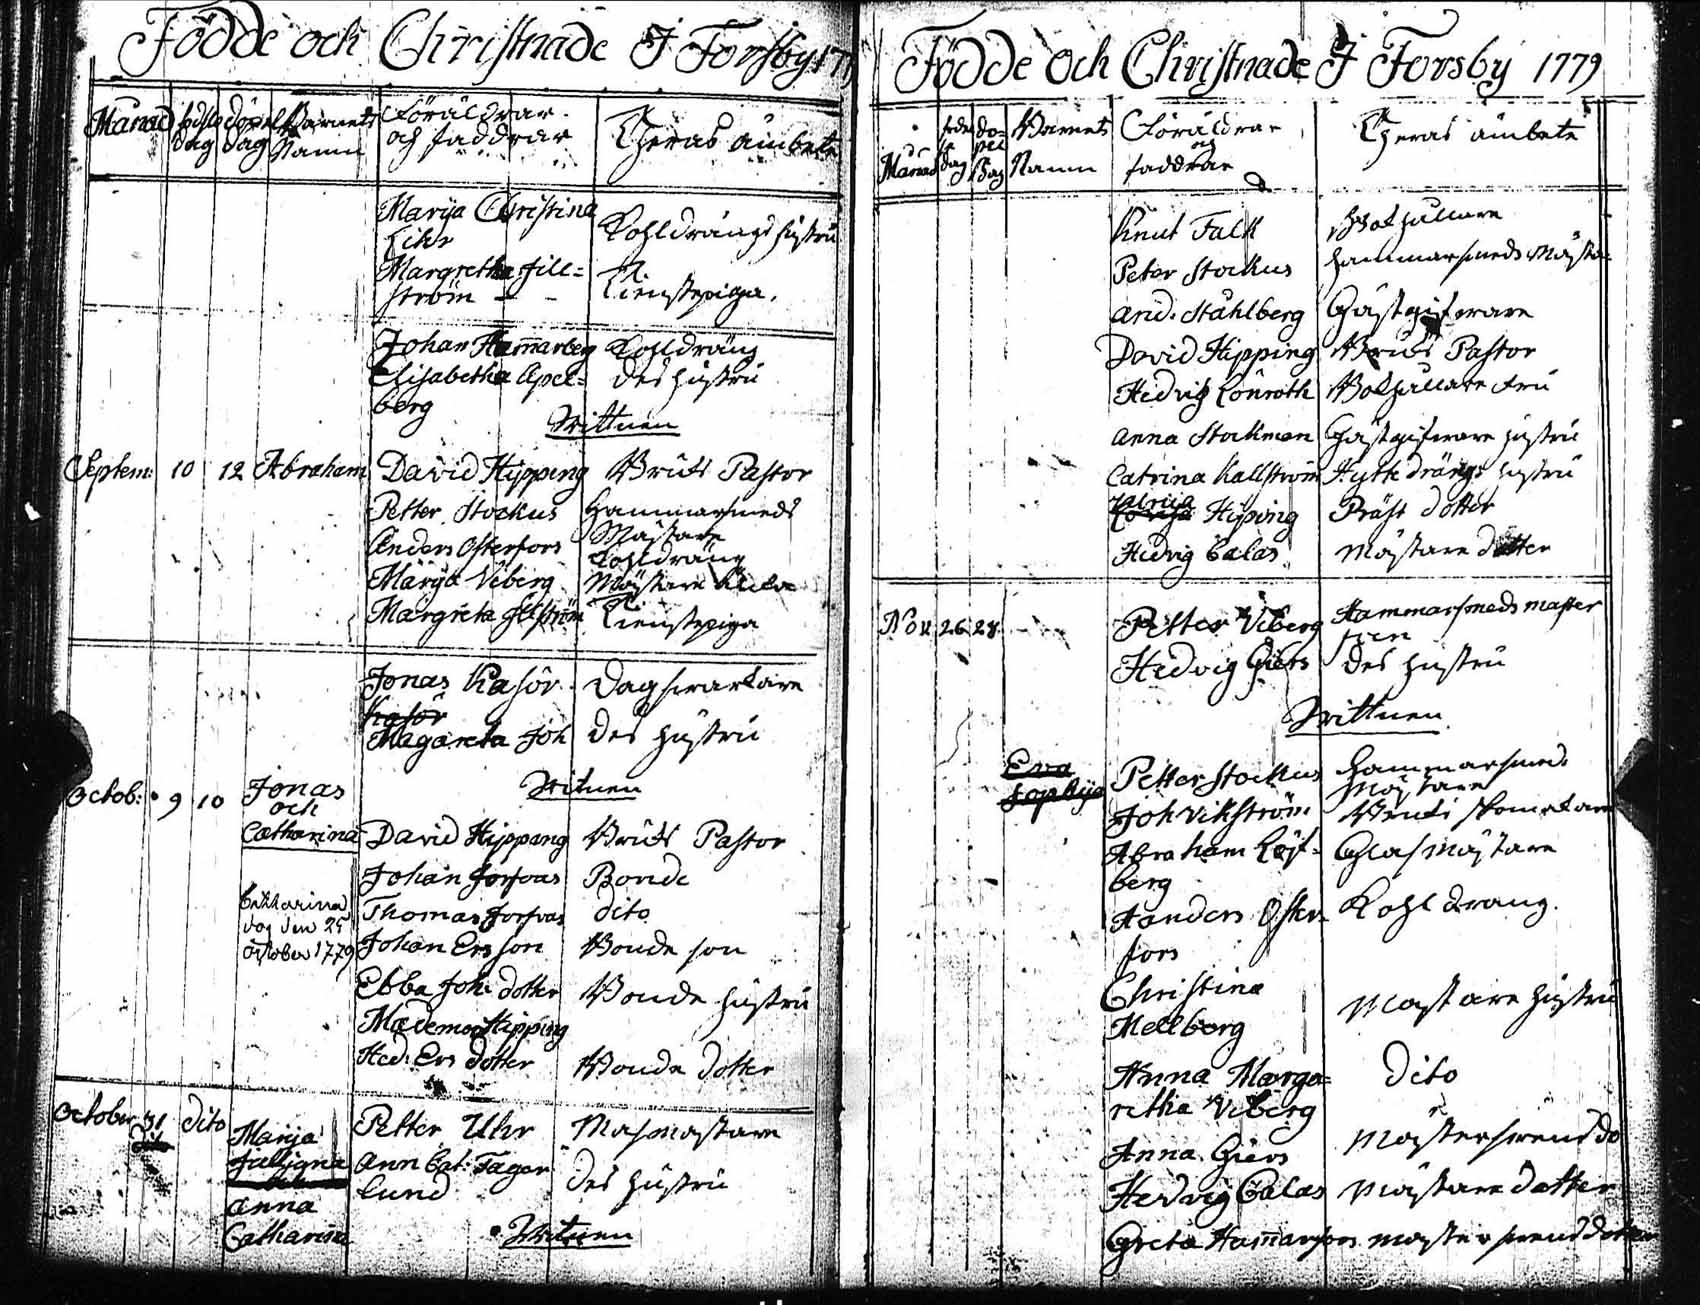 Födde och Christnade I Forsby 177
Månad födelse dag döpel dag Barnets Namn Föräldrar och faddrar Theras ämbete
Marija Christina Kohldrängs hustru
Lihr
Margretha Jill= Tienstepiga.
ström - -
Johan Ham̅arberg Kolldräng
Elisabetha Apel= des hustru
berg
Wittnen
Septem: 10 12 Abraham David Hipping Bruks Pastor
Petter Stockus Hammarsmeds
Mästare
Anders Osterfors Kohldräng
Marija Viberg Mästare
Margreta Tienstepiga
Jonas Kasör Dagsvarkare
Kasör
Magareta Joh des hustru
Witnen
Octob: 9 10 Jonas
och
Catharina David Hipping Bruks Pastor
Johan Forsvas Bonde
Catharina Thomas Forsvas dito
dog den 25
October 1779 Johan Ersson Bonde son
Ebba Joh: dotter Bonde hustru
Mademo Hipping
Hed: Ers dotter Bonde dotter
October 31 dito Marija Petter Uhr Masmästare
dito
Ann Cat: Fager des hustru
lund
Anna
Catharina Witnen
Födde och Christnade I Forsby 1779
Månad föde dag dö= pel Dag Barnets Namn Föräldrar och faddrar Theras ämbete
Knut Falk Bokhållare
Peter Stockus Hammarsmeds Mästa=
And. Ståhlberg Gästgifvare
David Hipping Bruks Pastor
Hedvig Lönroth Bokhållare fru
Anna Stockman Gästgifvare hustru
Catrina Kallström Hytte drängs hustru
Ulrica Hipping Präst dotter
Hedvig Calas Mästare dotter
Nov 26 28 Petter Viberg Hammarsmeds mäster
sven
Hedvig Giers des hustru
Wittnen
Eva
Sophija Petter Stockus Hammarsmeds
Mästare
Joh Vikström Bruks
Abraham Löf= Glasmästare
berg
Handers Oster Kohldräng.
fors
Christina Mästare hustru
Mellberg
Anna Marga= Dito
retha Viberg
Anna Giers Mästersvend do
Hedvig Calas Mästare dotter
Greta Ham̅arfors mästersvend dotter